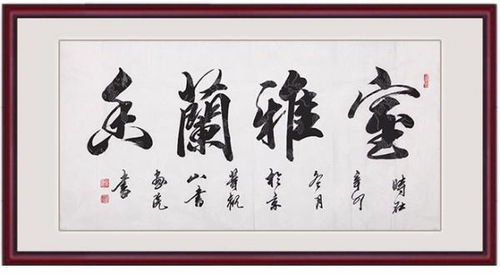 室雅蘭香
時在
辛卯
冬月
於京
山書
畫院
書